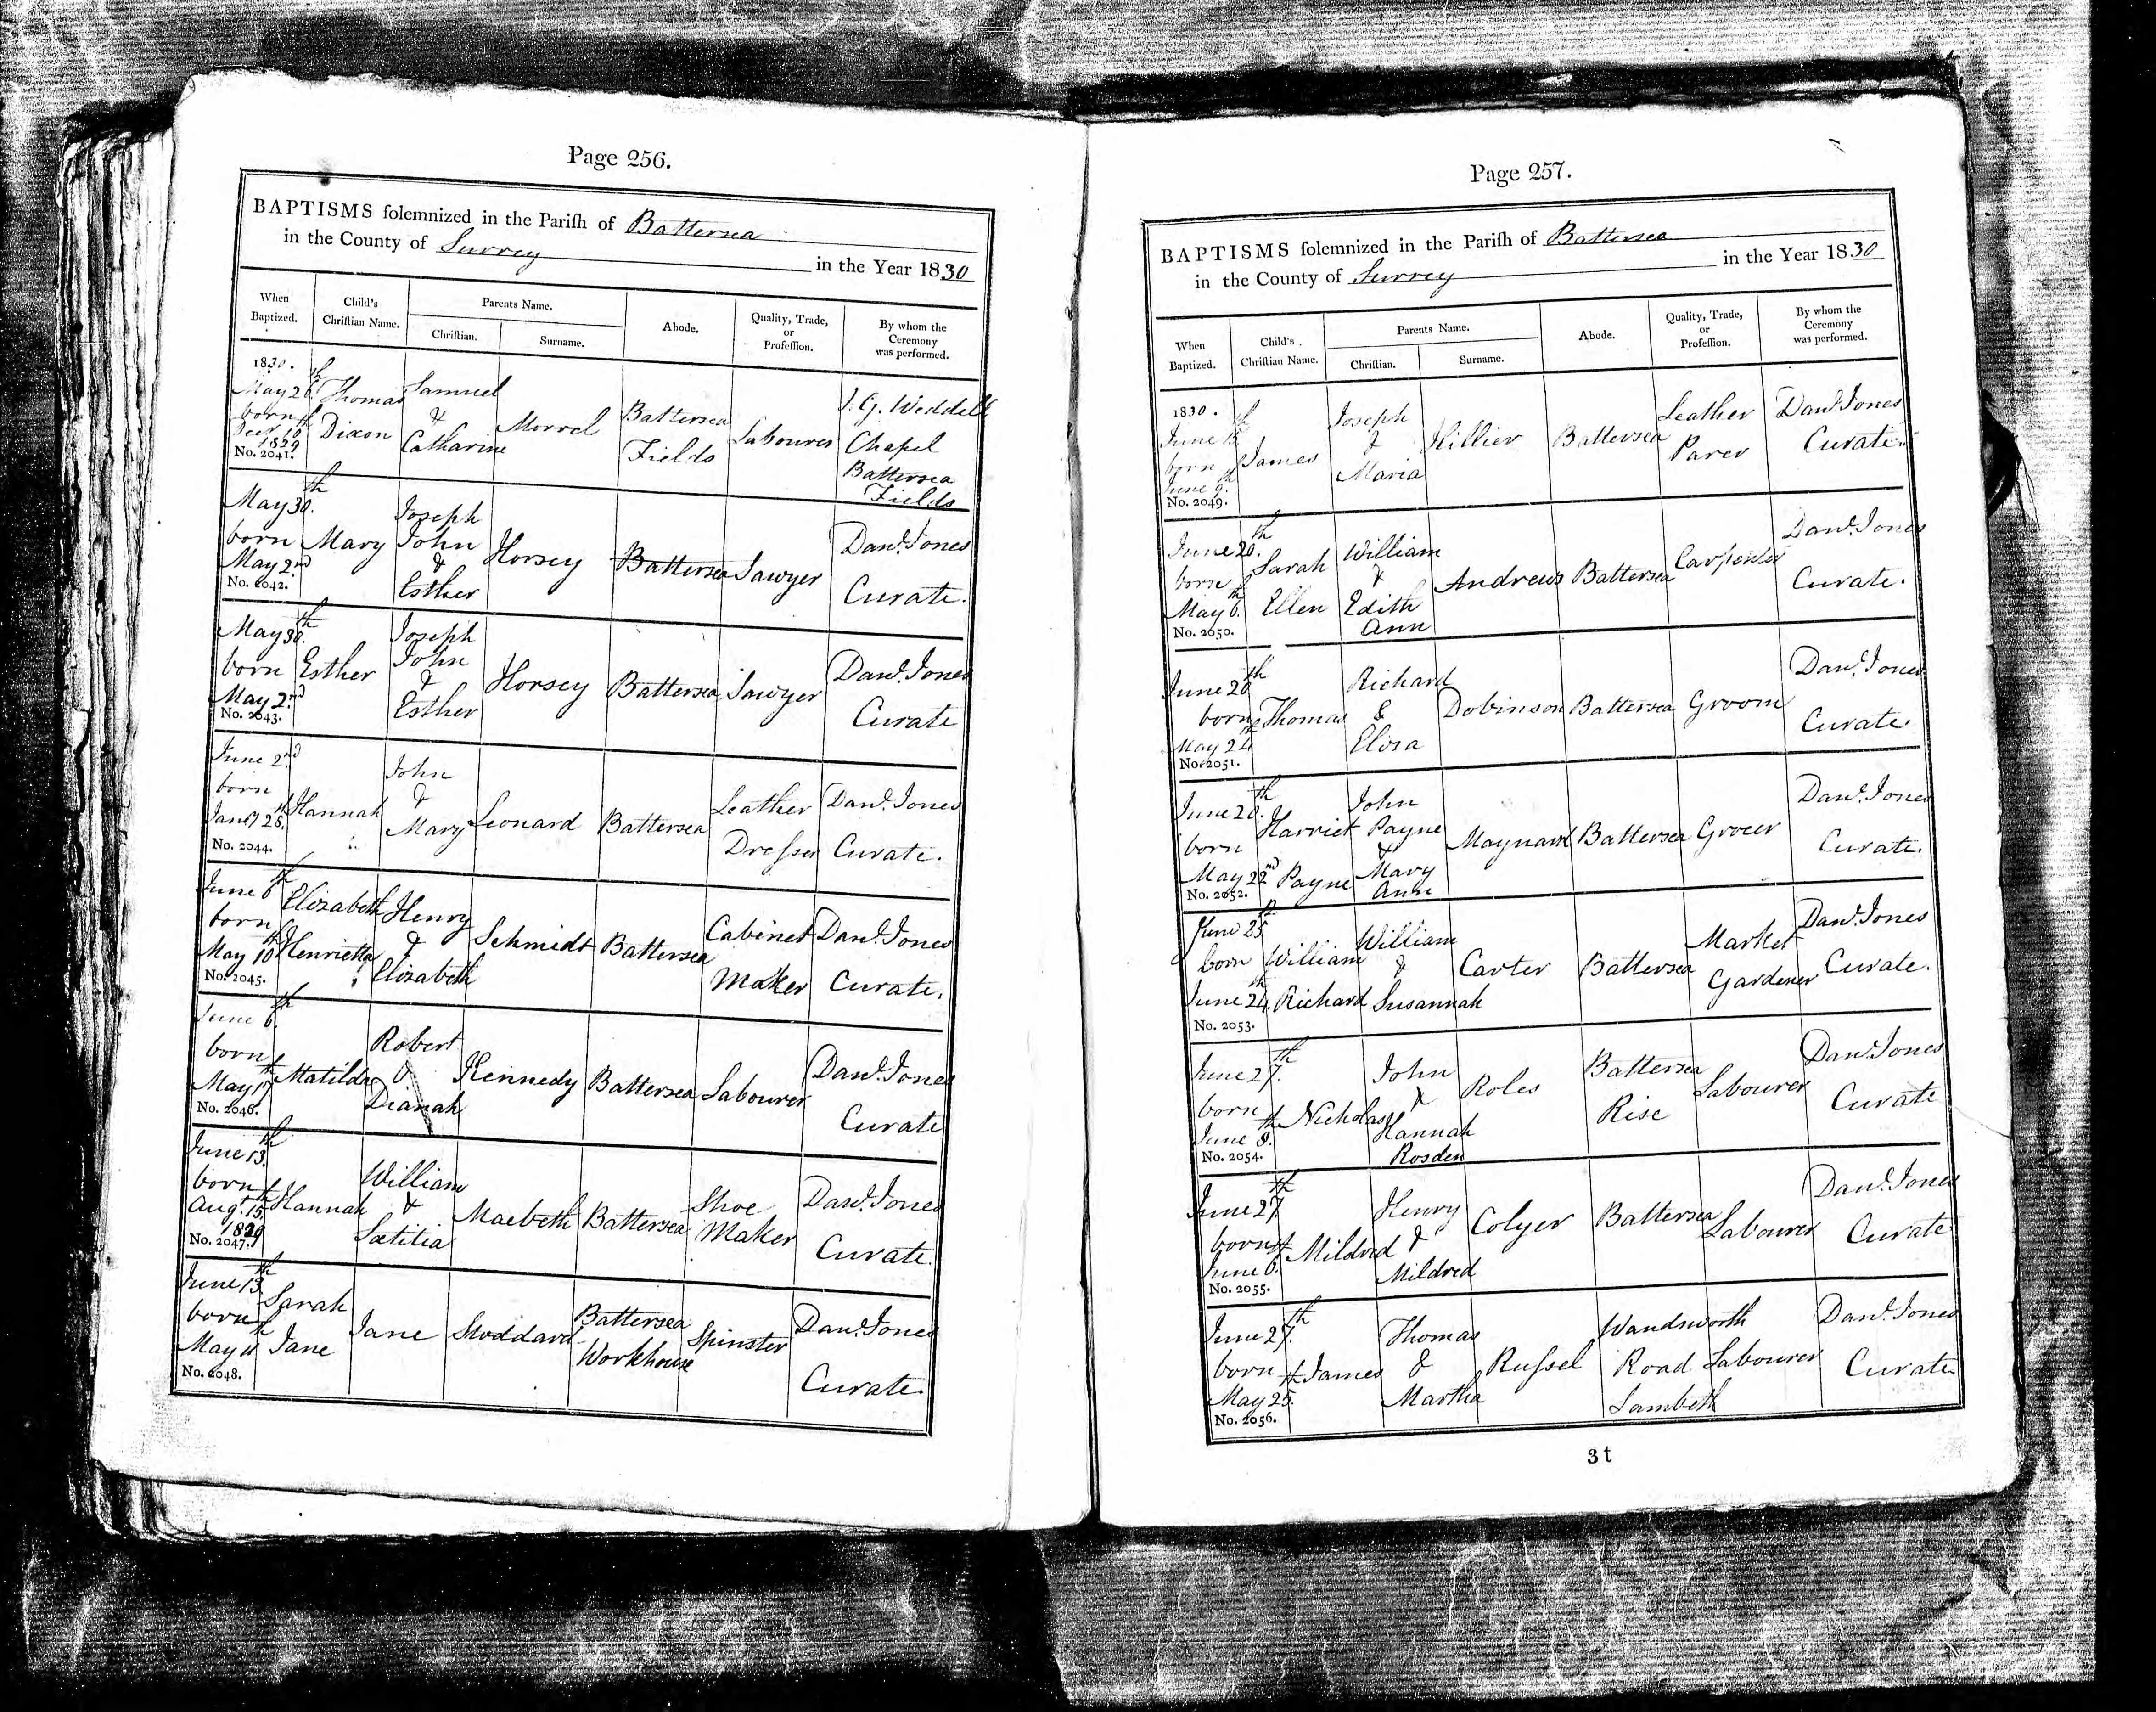 Page 256.
BAPTISMS solemnized in the Parish of Battersea
in the County of Surrey in the Year 1830
When Baptized. Child's Christian Name. Parents Name. Christian. Surname. Abode. Quality, Trade, or Profession. By whom the Ceremony was performed.
1830. May 26th born Decr 10th 1829 No. 2041. Thomas Dixon Samuel & Catharine Morrel Battersea Fields Labourer J. G. Weddell Chapel Battersea Fields
May 30th born May 2nd No. 2042. Mary Joseph John & Esther Horsey Battersea Sawyer Danl. Jones Curate.
May 30th born May 2nd No. 2043. Esther Joseph John & Esther Horsey Battersea Sawyer Danl. Jones Curate
June 2nd born Jany 28th No. 2044. Hannah John & Mary Leonard Battersea Leather Dresser Danl. Jones Curate.
June 6th born May 10th No. 2045. Elizabeth Henrietta Henry & Elizabeth Schmidt Battersea Cabinet Maker Danl. Jones Curate.
June 6th born May 17th No. 2046. Matilda Robert & Dianah Kennedy Battersea Labourer Danl. Jones Curate
June 13th born Augt. 15th 1829 No. 2047. Hannah William & Lætitia Macbeth Battersea Shoe Maker Danl. Jones Curate.
June 13th born May 11th No. 2048. Sarah Jane Jane Stoddard Battersea Workhouse Spinster Danl. Jones Curate.
Page 257.
BAPTISMS solemnized in the Parish of Battersea
in the County of Surrey in the Year 1830
When Baptized. Child's Christian Name. Parents Name. Christian. Surname. Abode. Quality, Trade, or Profession. By whom the Ceremony was performed.
1830. June 15th born June 9th No. 2049. James Joseph & Maria Hillier Battersea Leather Parer Danl. Jones Curate.
June 20th born May 6th No. 2050. Sarah Ellen William & Edith Ann Andrews Battersea Carpenter Danl. Jones Curate.
June 20th born May 24th No. 2051. Thomas Richard & Eliza Dobinson Battersea Groom Danl. Jones Curate.
June 20th born May 22nd No. 2052. Harriet Payne John Payne & Mary Ann Maynard Battersea Grocer Danl. Jones Curate.
June 25th born June 24th No. 2053. William Richard William & Susannah Carter Battersea Market Gardener Danl. Jones Curate.
June 27th born June 8th No. 2054. Nicholas John & Hannah Rosden Roles Battersea Rise Labourer Danl. Jones Curate
June 27th born June 6th No. 2055. Mildred Henry & Mildred Colyer Battersea Labourer Danl. Jones Curate
June 27th born May 25th No. 2056. James Thomas & Martha Russel Wandsworth Road Lambeth Labourer Danl. Jones Curate
3 t